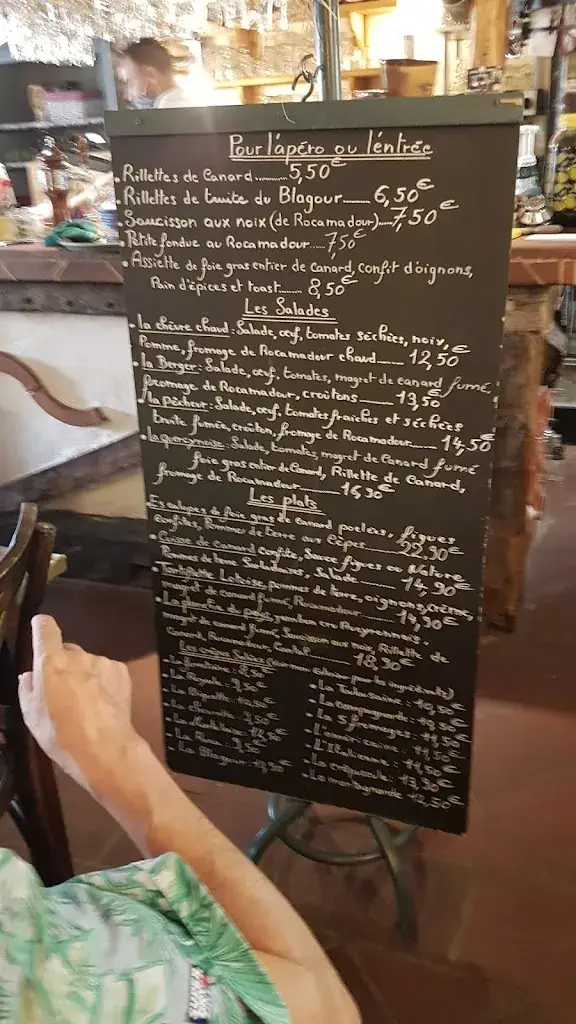 Pour l'apéro ou l'entrée
Rillettes de Canard......... 5,50€
Rillettes de truite du Blagour...... 6,50€
Saucisson aux noix (de Rocamadour)... 7,50€
Petite fondue au Rocamadour.... 7,50€
Assiette de foie gras entier de canard, confit d'oignons,
Pain d'épices et toast........ 8,50€
Les Salades
La chèvre chaud : Salade, œuf, tomates séchées, noix,
Pomme, fromage de Rocamadour chaud...... 12,50€
La Berger : Salade, œuf, tomates, magret de canard fumé,
fromage de Rocamadour, croûtons....... 13,50€
La Pêcheur : Salade, œuf, tomates fraiches et séchées
truite fumée, croûton, fromage de Rocamadour...... 14,50€
La quercynoise : Salade, tomates, magret de Canard fumé
foie gras entier de Canard, Rillette de Canard,
fromage de Rocamadour........ 16,90€
Les plats
Escalopes de foie gras de canard poelées, figues
confites, Pommes de terre aux cèpes...... 22,90€
Cuisse de canard confite, Sauce figues ou Nature
Pommes de terre Sarladaises, Salade...... 14,90€
Tartiflette Lotoise, pommes de terre, oignons, crème,
magret de canard fumé, Rocamadour...... 14,90€
La planche du pays, jambon cru Aveyronnais,
magret de canard fumé, Saucisson aux noix, Rillette de
Canard, Rocamadour, Cantal........ 18,90€
Les crêpes Salées (Voir menu extérieur pour les ingrédients)
La 8,50€
La Royale : 9,50€
La
La
La
La 9,50€
La Blagour :
La Toulousaine : 10,50€
La Campagnarde : 10,50€
La 5 fromages : 11,50€
L'américaine : 11,50€
L'Italienne : 11,50€
La crépuscule : 13,90€
La montagnarde 12,50€